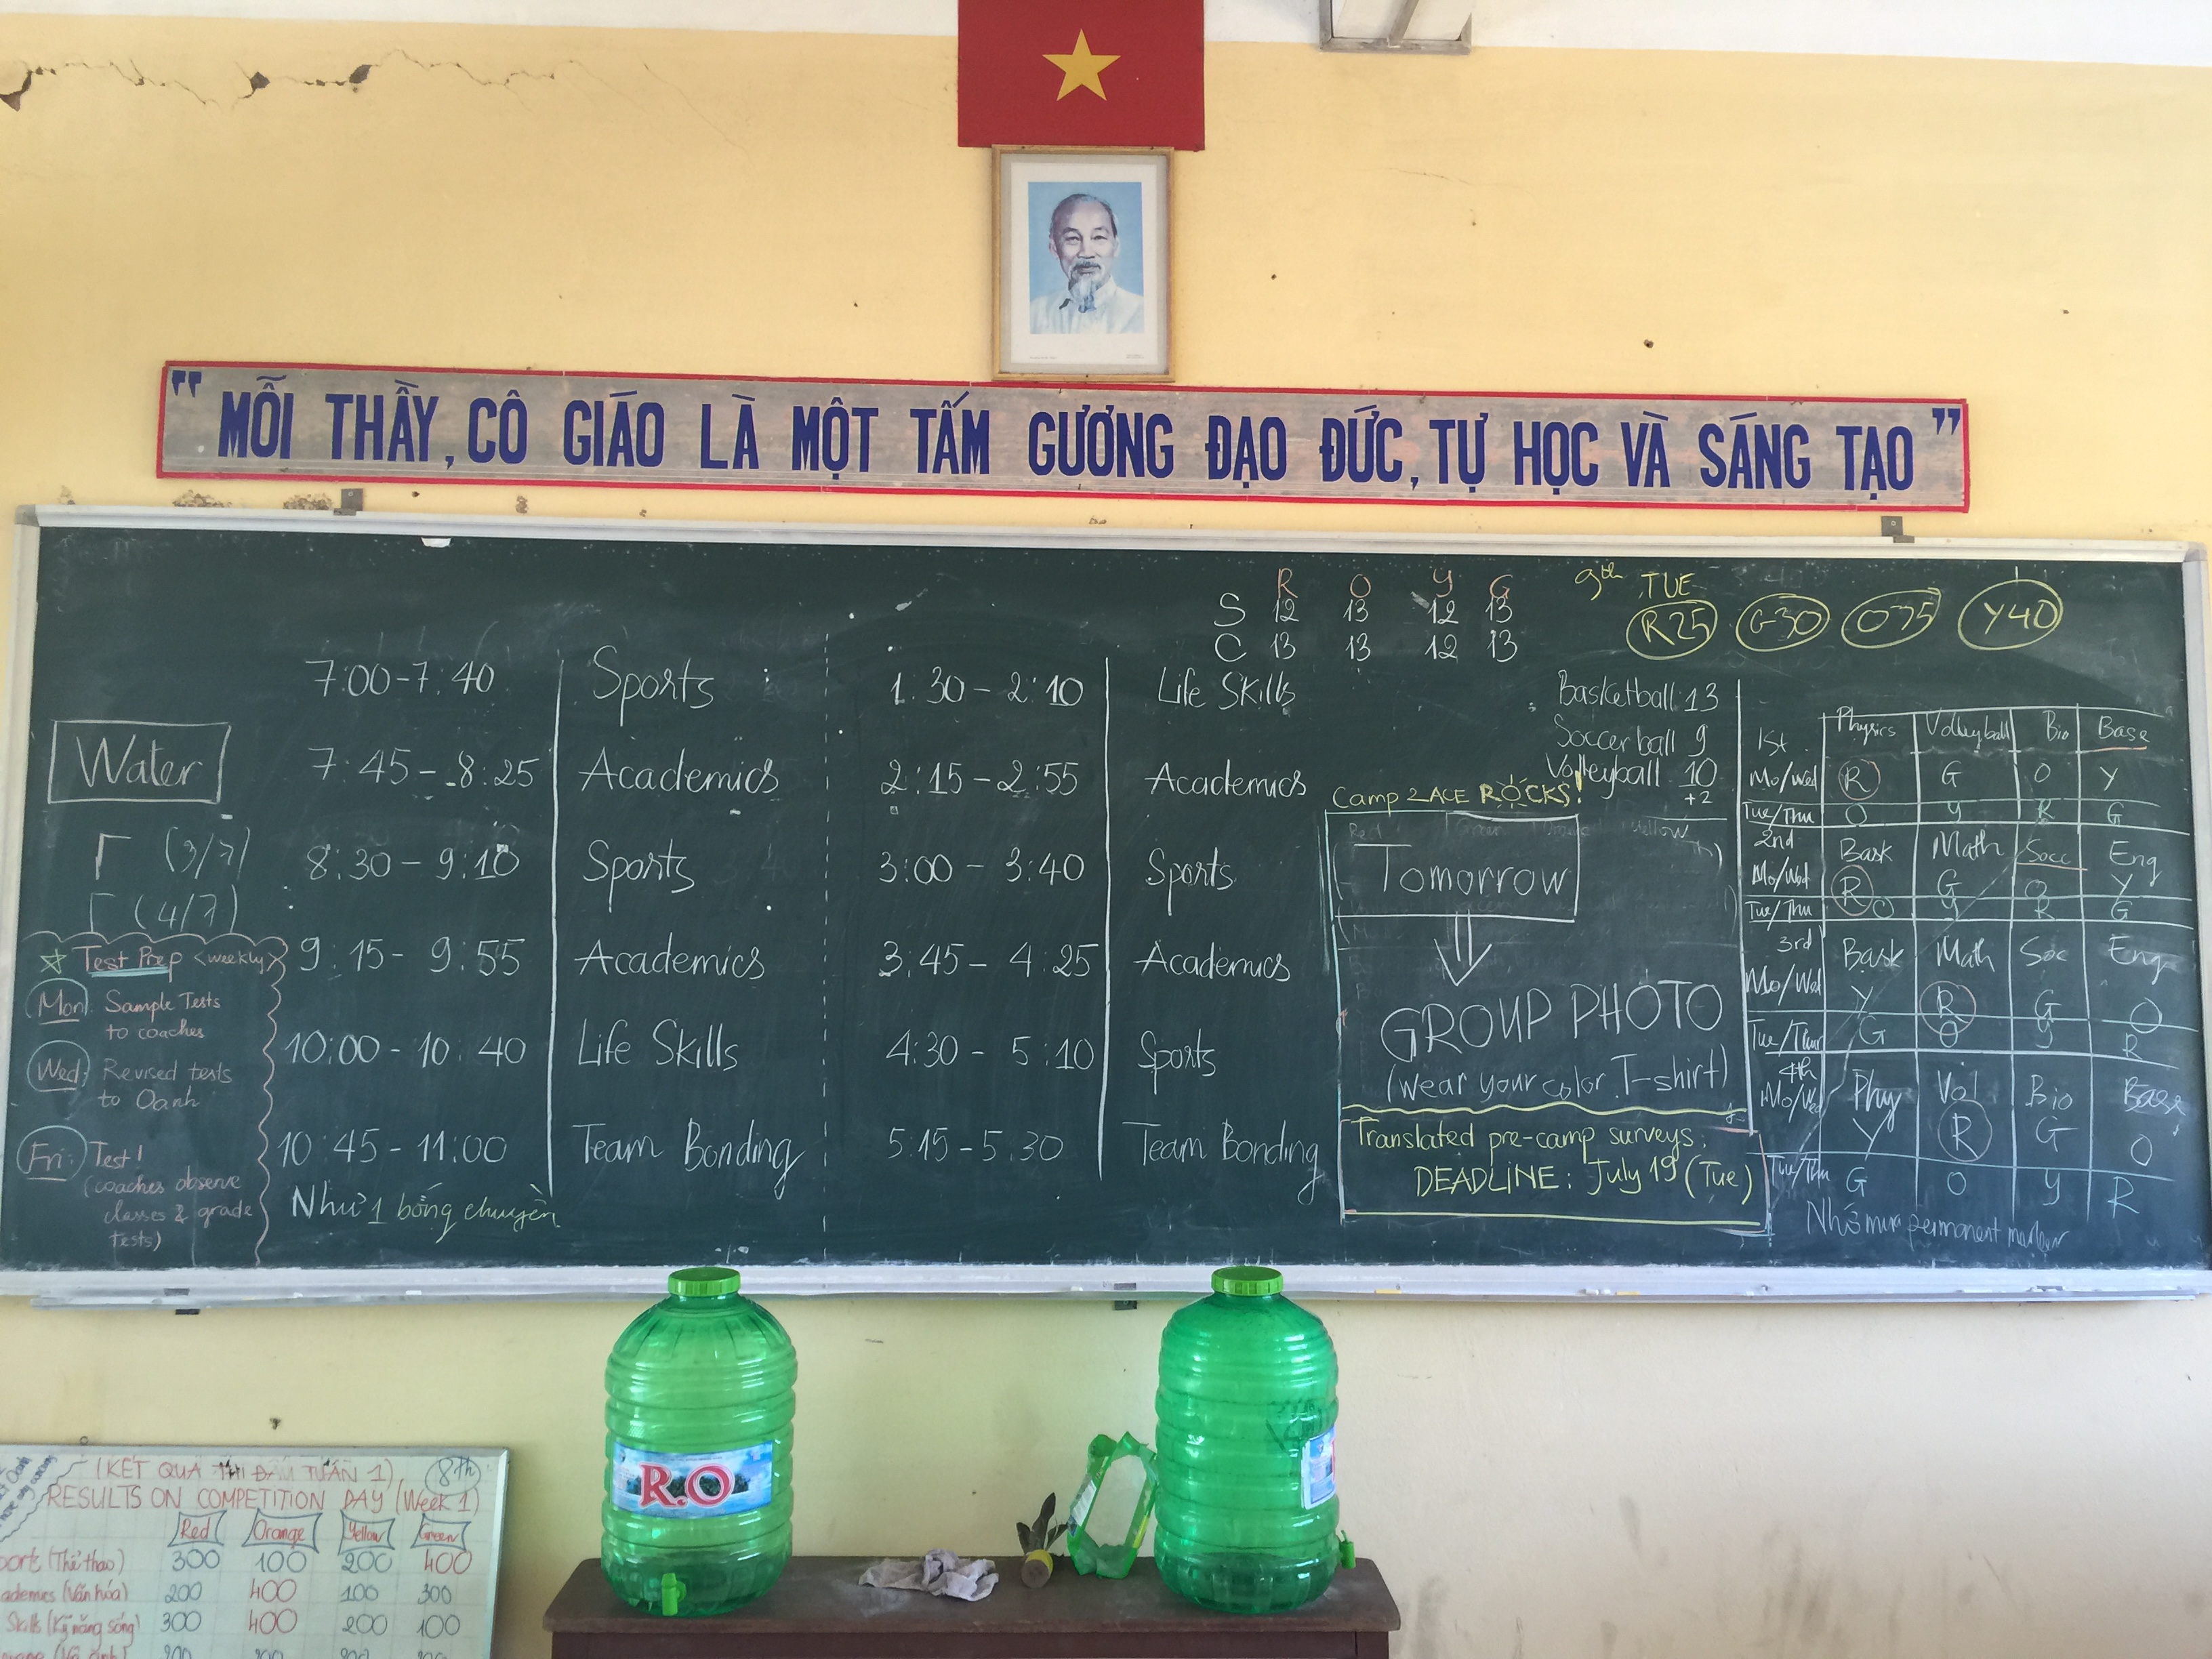 " MỖI THẦY, CÔ GIÁO LÀ MỘT TẤM GƯƠNG ĐẠO ĐỨC, TỰ HỌC VÀ SÁNG TẠO "
R O Y G
S 12 13 12 13
C 13 13 12 13
9th TUE
R25 G30 O35 Y40
Water
(3/7)
(4/7)
Test Prep <weekly>
Mon: Sample Tests
to coaches
Wed: Revised tests
to Oanh
Fri: Test!
(coaches observe
classes & grade
tests)
7:00-7:40 Sports
7:45-8:25 Academics
8:30-9:10 Sports
9:15-9:55 Academics
10:00-10:40 Life Skills
10:45-11:00 Team Bonding
Như 1 bóng chuyền
1:30-2:10 Life Skills
2:15-2:55 Academics
3:00-3:40 Sports
3:45-4:25 Academics
4:30-5:10 Sports
5:15-5:30 Team Bonding
Basketball 13
Soccerball 9
Volleyball 10
+2
Camp 2ACE ROCKS!
Tomorrow
GROUP PHOTO
(wear your color T-shirt)
Translated pre-camp surveys:
DEADLINE: July 19 (Tue)
1st Physics Volleyball Bio Base
Mo/Wed R G O Y
Tue/Thu O Y R G
2nd Bask Math Socc Eng
Mo/Wed R G O Y
Tue/Thu O Y R G
3rd Bask Math Soc Eng
Mo/Wed Y R G O
Tue/Thur G O Y R
4th Phy Vol Bio Base
Mo/Wed Y R G O
Tue/Thu G O Y R
permanent marker
R.O
(KẾT QUẢ THI ĐẤU TUẦN 1) 8th
RESULTS ON COMPETITION DAY (Week 1)
Red Orange Yellow Green
(Thể thao) 300 100 200 400
(Văn hóa) 200 400 100 300
Skills (Kỹ năng sống) 300 400 200 100